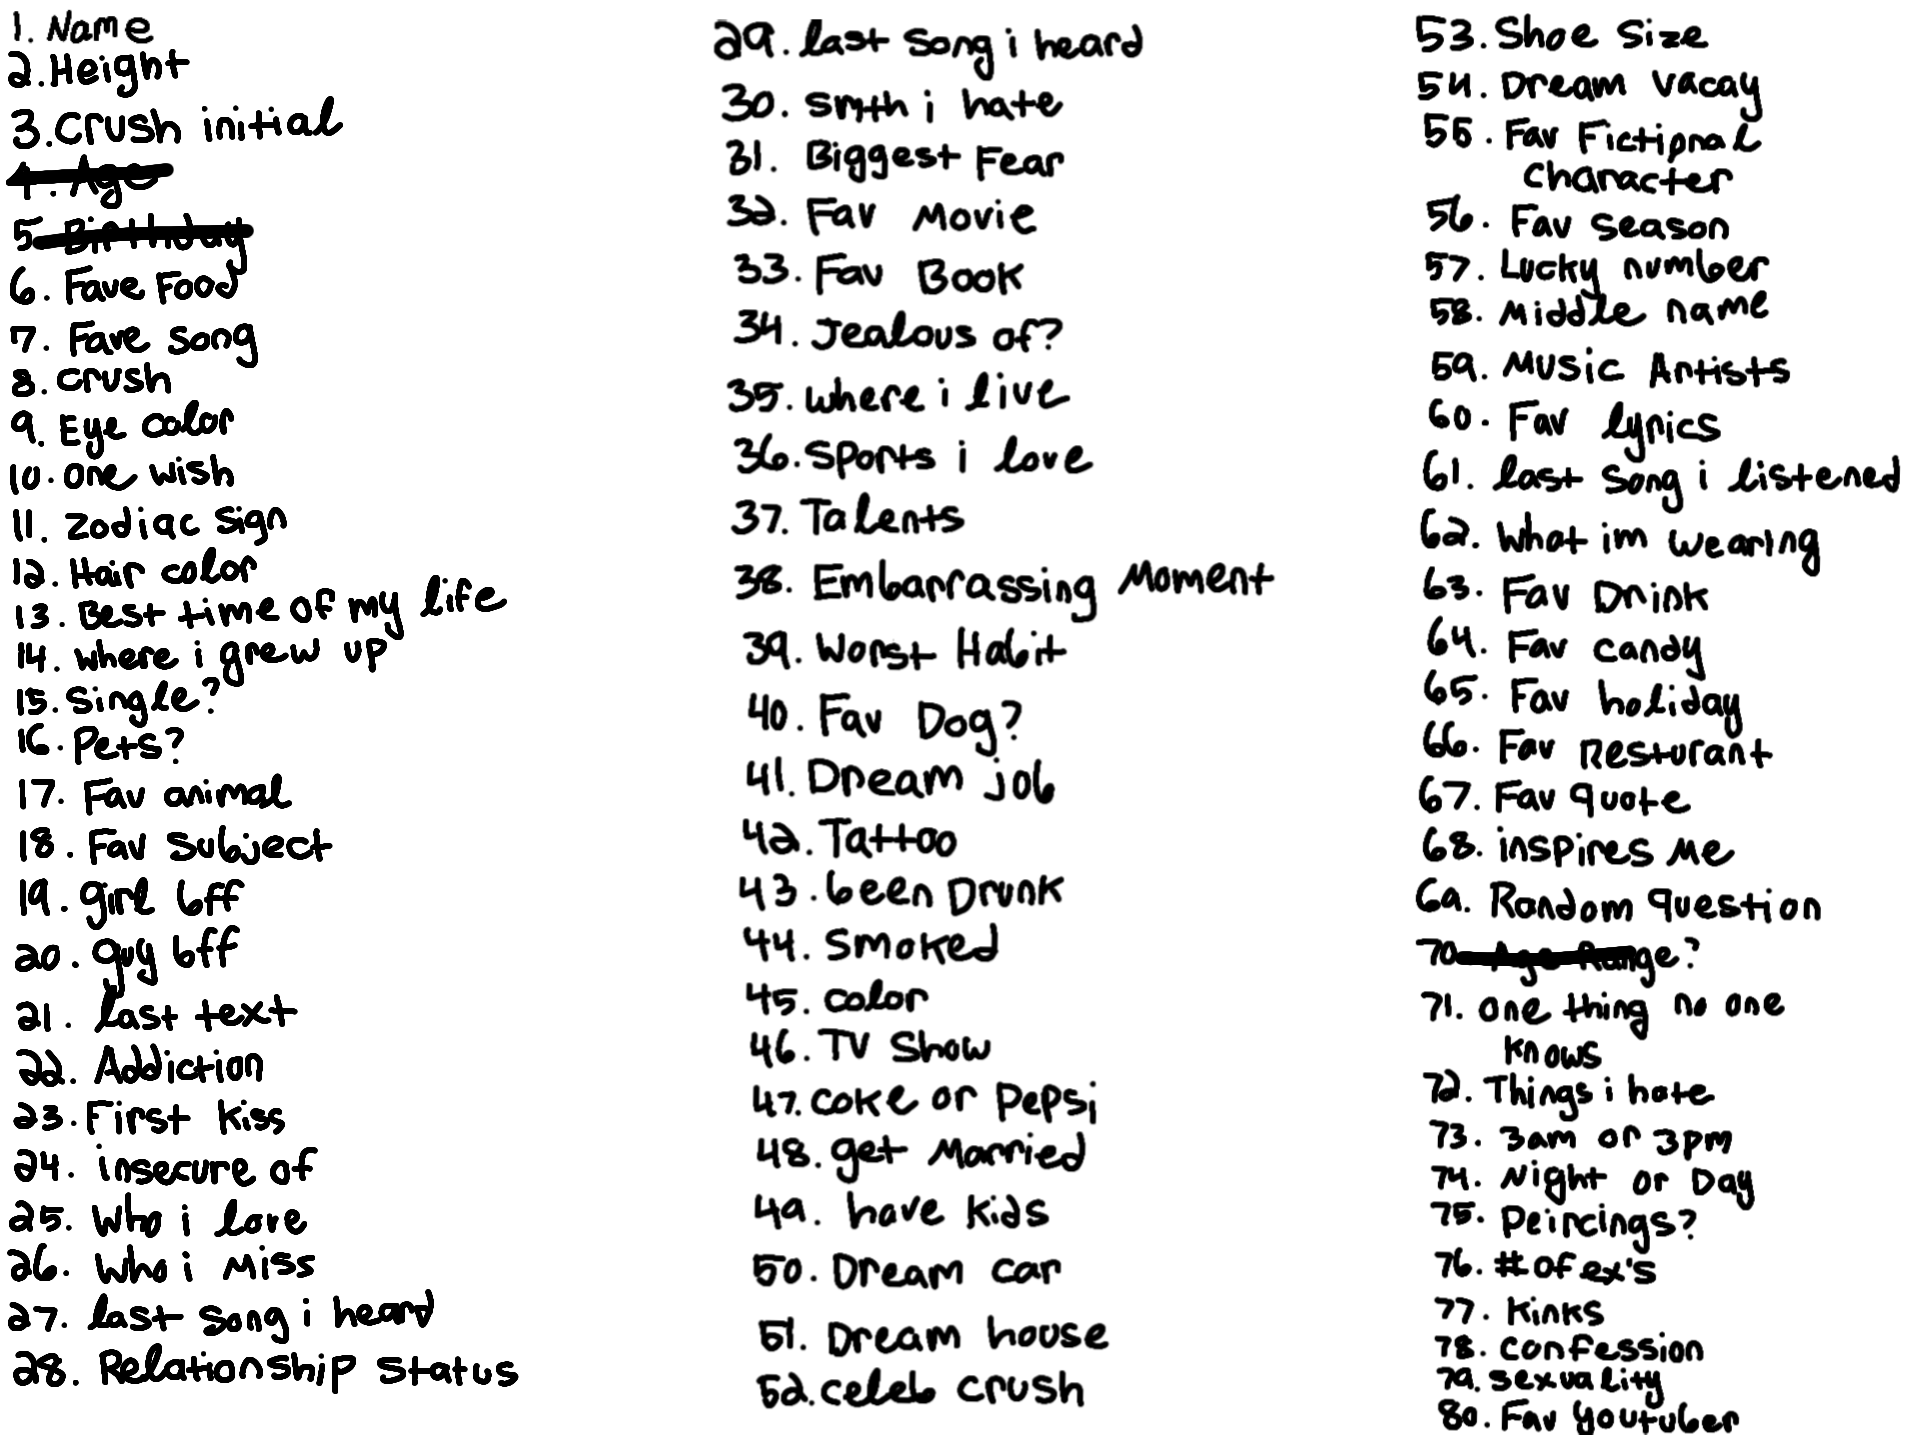 1. Name
2. Height
3. Crush initial
4. Age
5. Birthday
6. Fave Food
7. Fave song
8. crush
9. Eye color
10. one wish
11. zodiac sign
12. Hair color
13. Best time of my life
14. where i grew up
15. Single?
16. Pets?
17. Fav animal
18. Fav subject
19. girl bff
20. guy bff
21. last text
22. Addiction
23. First kiss
24. insecure of
25. Who i love
26. Who i Miss
27. last song i heard
28. Relationship status
29. last song i heard
30. smth i hate
31. Biggest Fear
32. Fav Movie
33. Fav Book
34. Jealous of?
35. where i live
36. Sports i love
37. Talents
38. Embarrassing Moment
39. Worst Habit
40. Fav Dog?
41. Dream job
42. Tattoo
43. been Drunk
44. Smoked
45. color
46. TV Show
47. coke or Pepsi
48. get Married
49. have kids
50. Dream car
51. Dream house
52. celeb crush
53. Shoe Size
54. Dream vacay
55. Fav Fictional
character
56. Fav season
57. Lucky number
58. Middle name
59. Music Artists
60. Fav lyrics
61. last song i listened
62. What im wearing
63. Fav Drink
64. Fav candy
65. Fav holiday
66. Fav Resturant
67. Fav quote
68. inspires Me
69. Random question
70. Age Range?
71. one thing no one
knows
72. Things i hate
73. 3am or 3pm
74. Night or Day
75. Peircings?
76. # of ex's
77. Kinks
78. confession
79. sexuality
80. Fav Youtuber